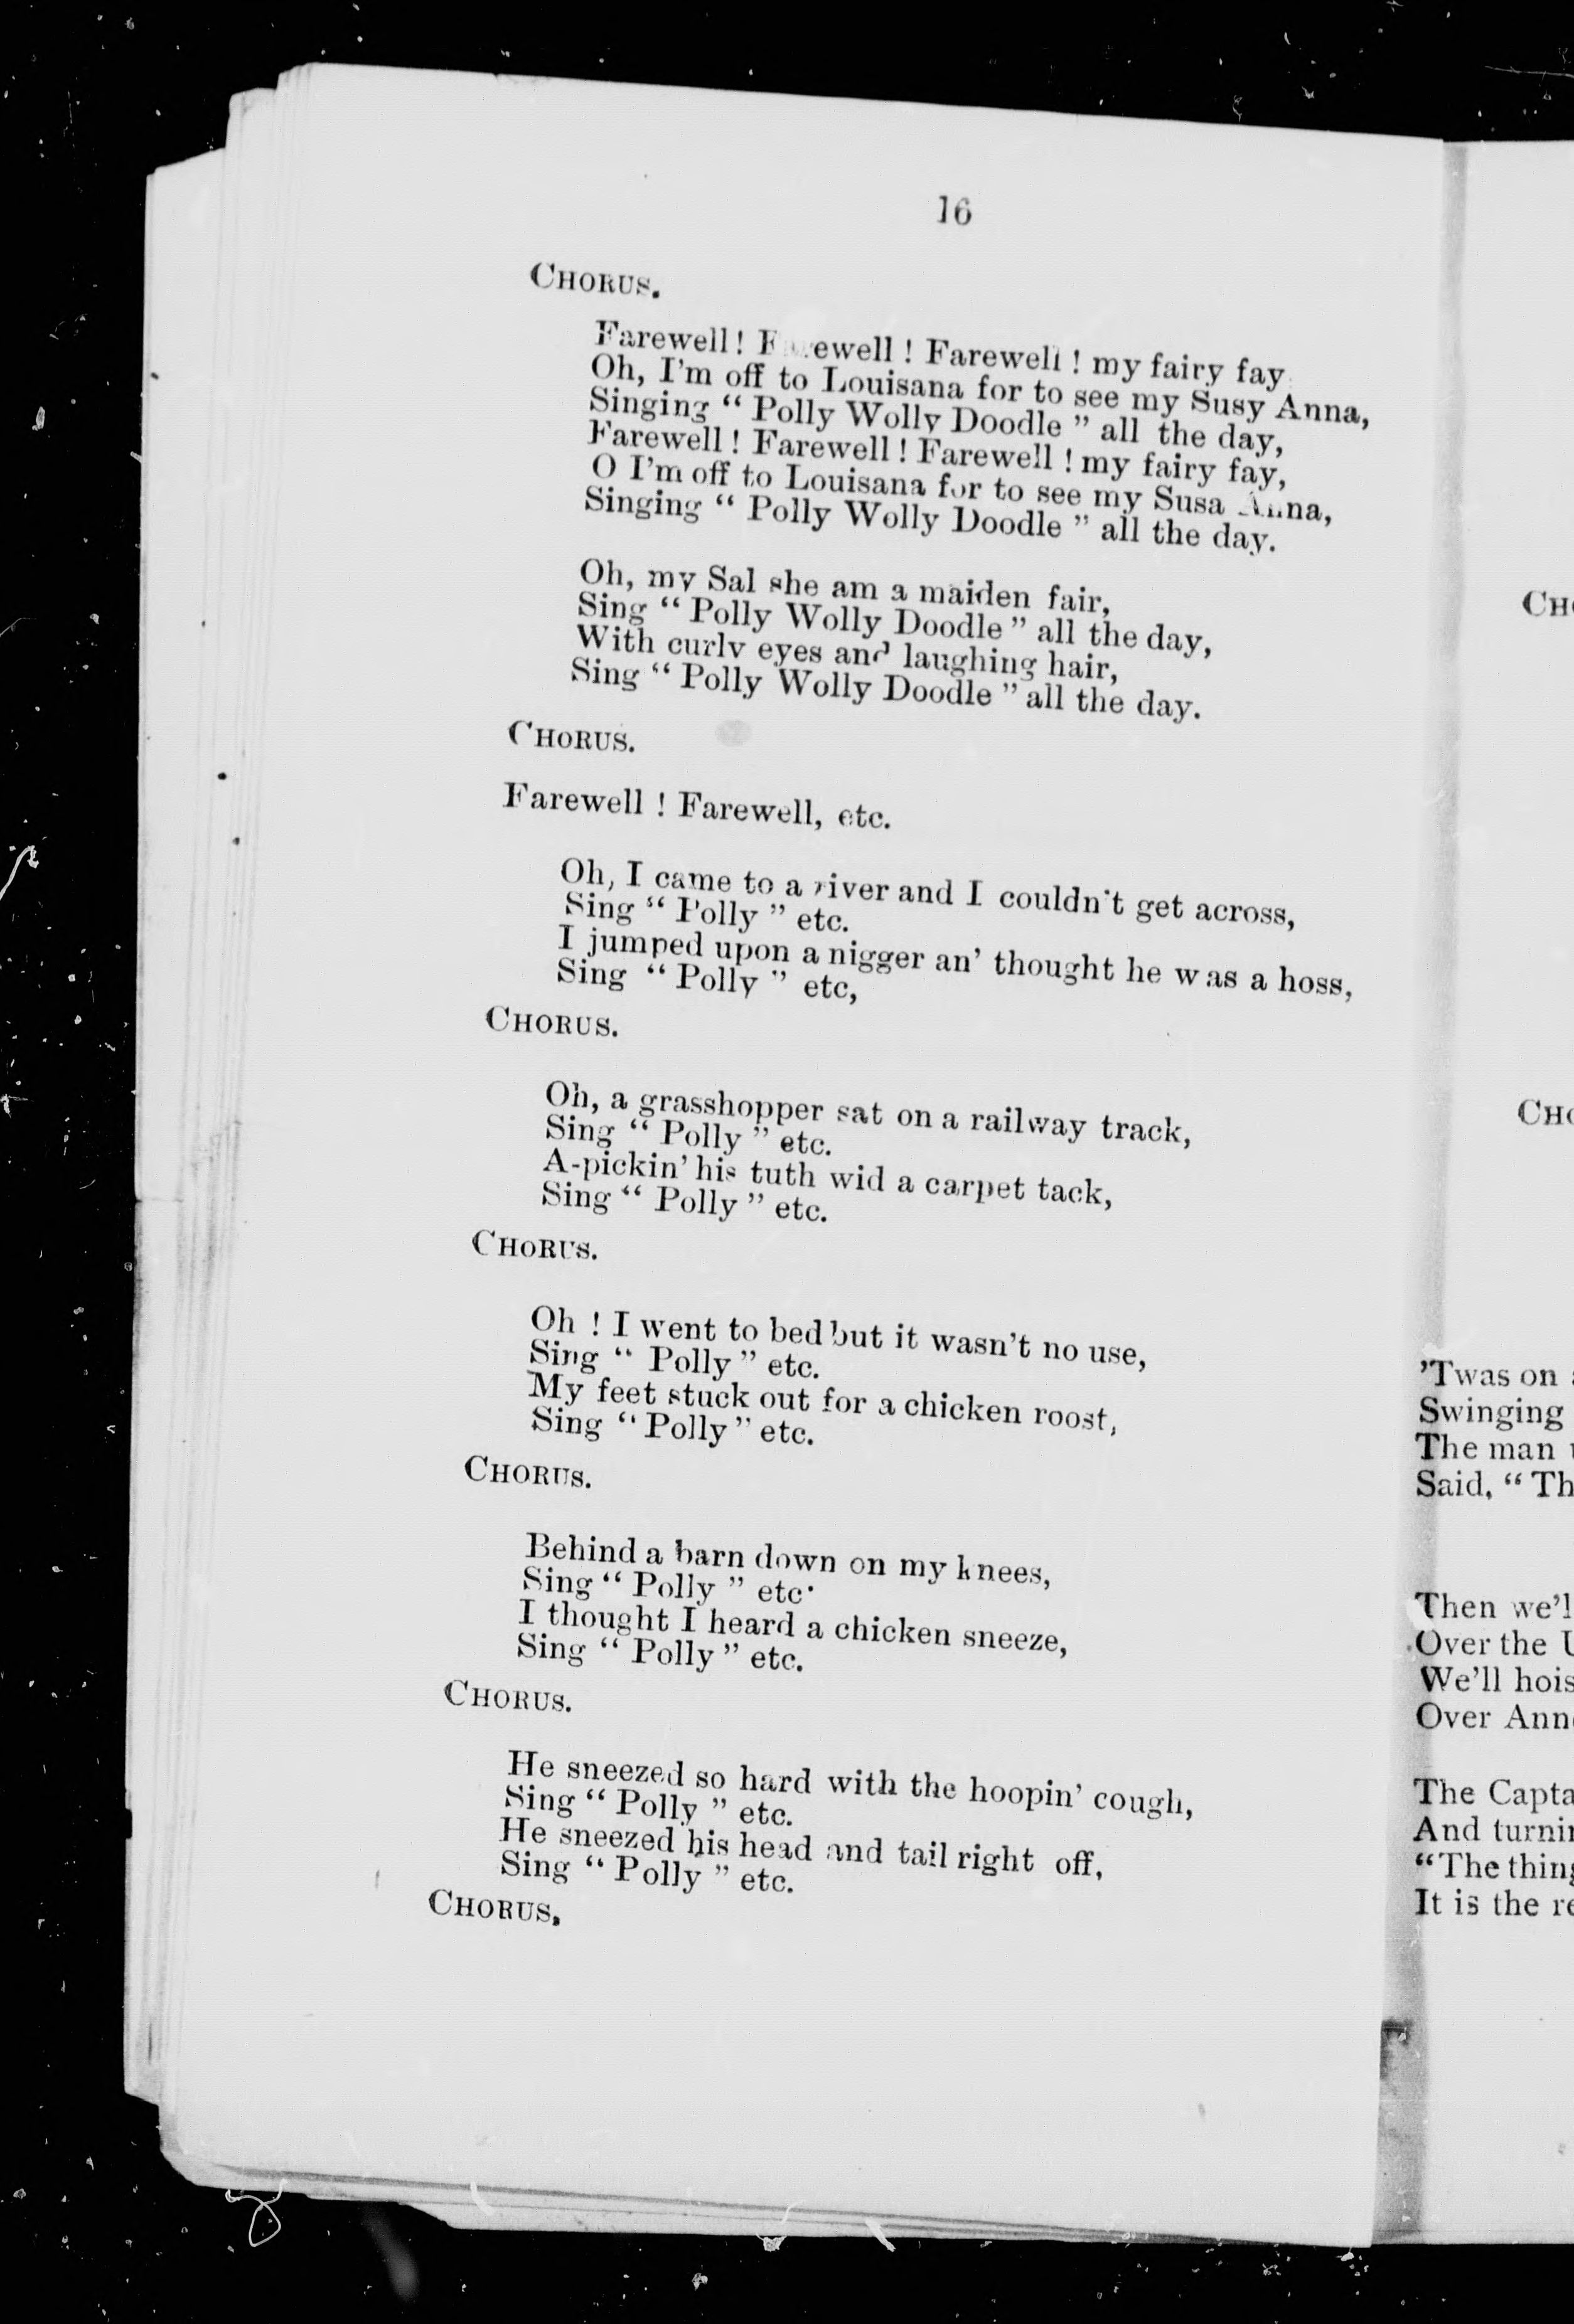 16
CHORUS.
Farewell! Farewell! Farewell! my fairy fay
Oh, I'm off to Louisana for to see my Susy Anna,
Singing " Polly Wolly Doodle " all the day,
Farewell! Farewell! Farewell! my fairy fay,
O I'm off to Louisana for to see my Susa Anna,
Singing " Polly Wolly Doodle " all the day.
Oh, my Sal she am a maiden fair,
Sing " Polly Wolly Doodle " all the day,
With curly eyes and laughing hair,
Sing " Polly Wolly Doodle " all the day.
CHORUS.
Farewell ! Farewell, etc.
Oh, I came to a river and I couldn't get across,
Sing " Polly " etc.
I jumped upon a nigger an' thought he was a hoss,
Sing " Polly " etc,
CHORUS.
Oh, a grasshopper sat on a railway track,
Sing " Polly " etc.
A-pickin' his tuth wid a carpet tack,
Sing " Polly " etc.
CHORUS.
Oh ! I went to bed but it wasn't no use,
Sing " Polly " etc.
My feet stuck out for a chicken roost,
Sing " Polly " etc.
CHORUS.
Behind a barn down on my knees,
Sing " Polly " etc.
I thought I heard a chicken sneeze,
Sing " Polly " etc.
CHORUS.
He sneezed so hard with the hoopin' cough,
Sing " Polly " etc.
He sneezed his head and tail right off,
Sing " Polly " etc.
CHORUS.
'Twas on
Swinging
The man
Said, "
Then
Over the
We'll
Over
The
And
"The
It is the